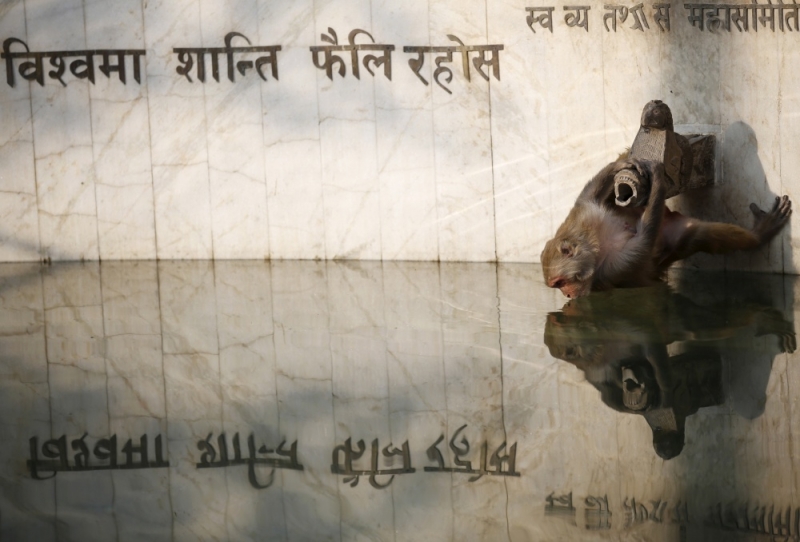 विश्वमा शान्ति फैलि रहोस
स्व व्य तथा स महासमिति